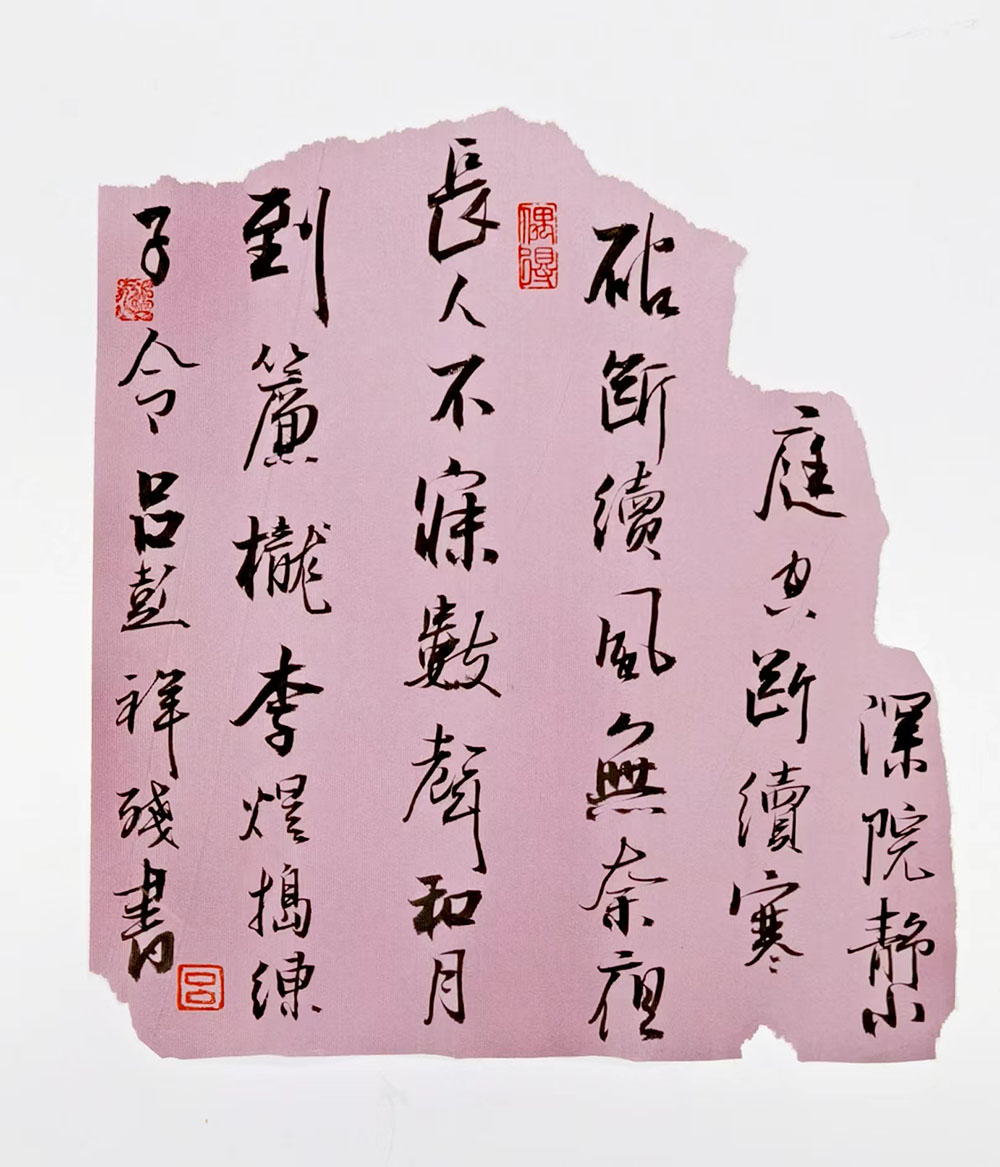 深院静小
庭空斷續寒
砧斷續風無奈夜
偶得
長人不寐數聲和月
到簾櫳李煜搗練
子令呂彭祥殘書
呂